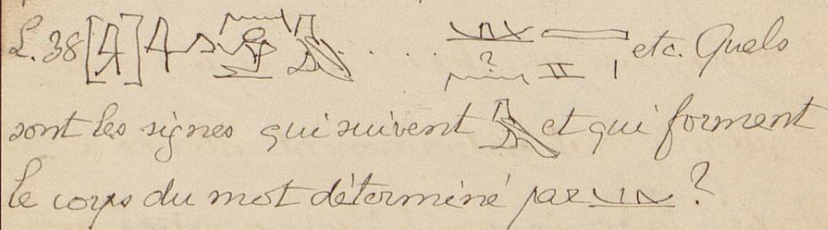 L. 38 [𓇓] 𓇓 . . . . ? II I etc. Quels
sont les signes qui suivent et qui forment
le corps du mot déterminé par ?